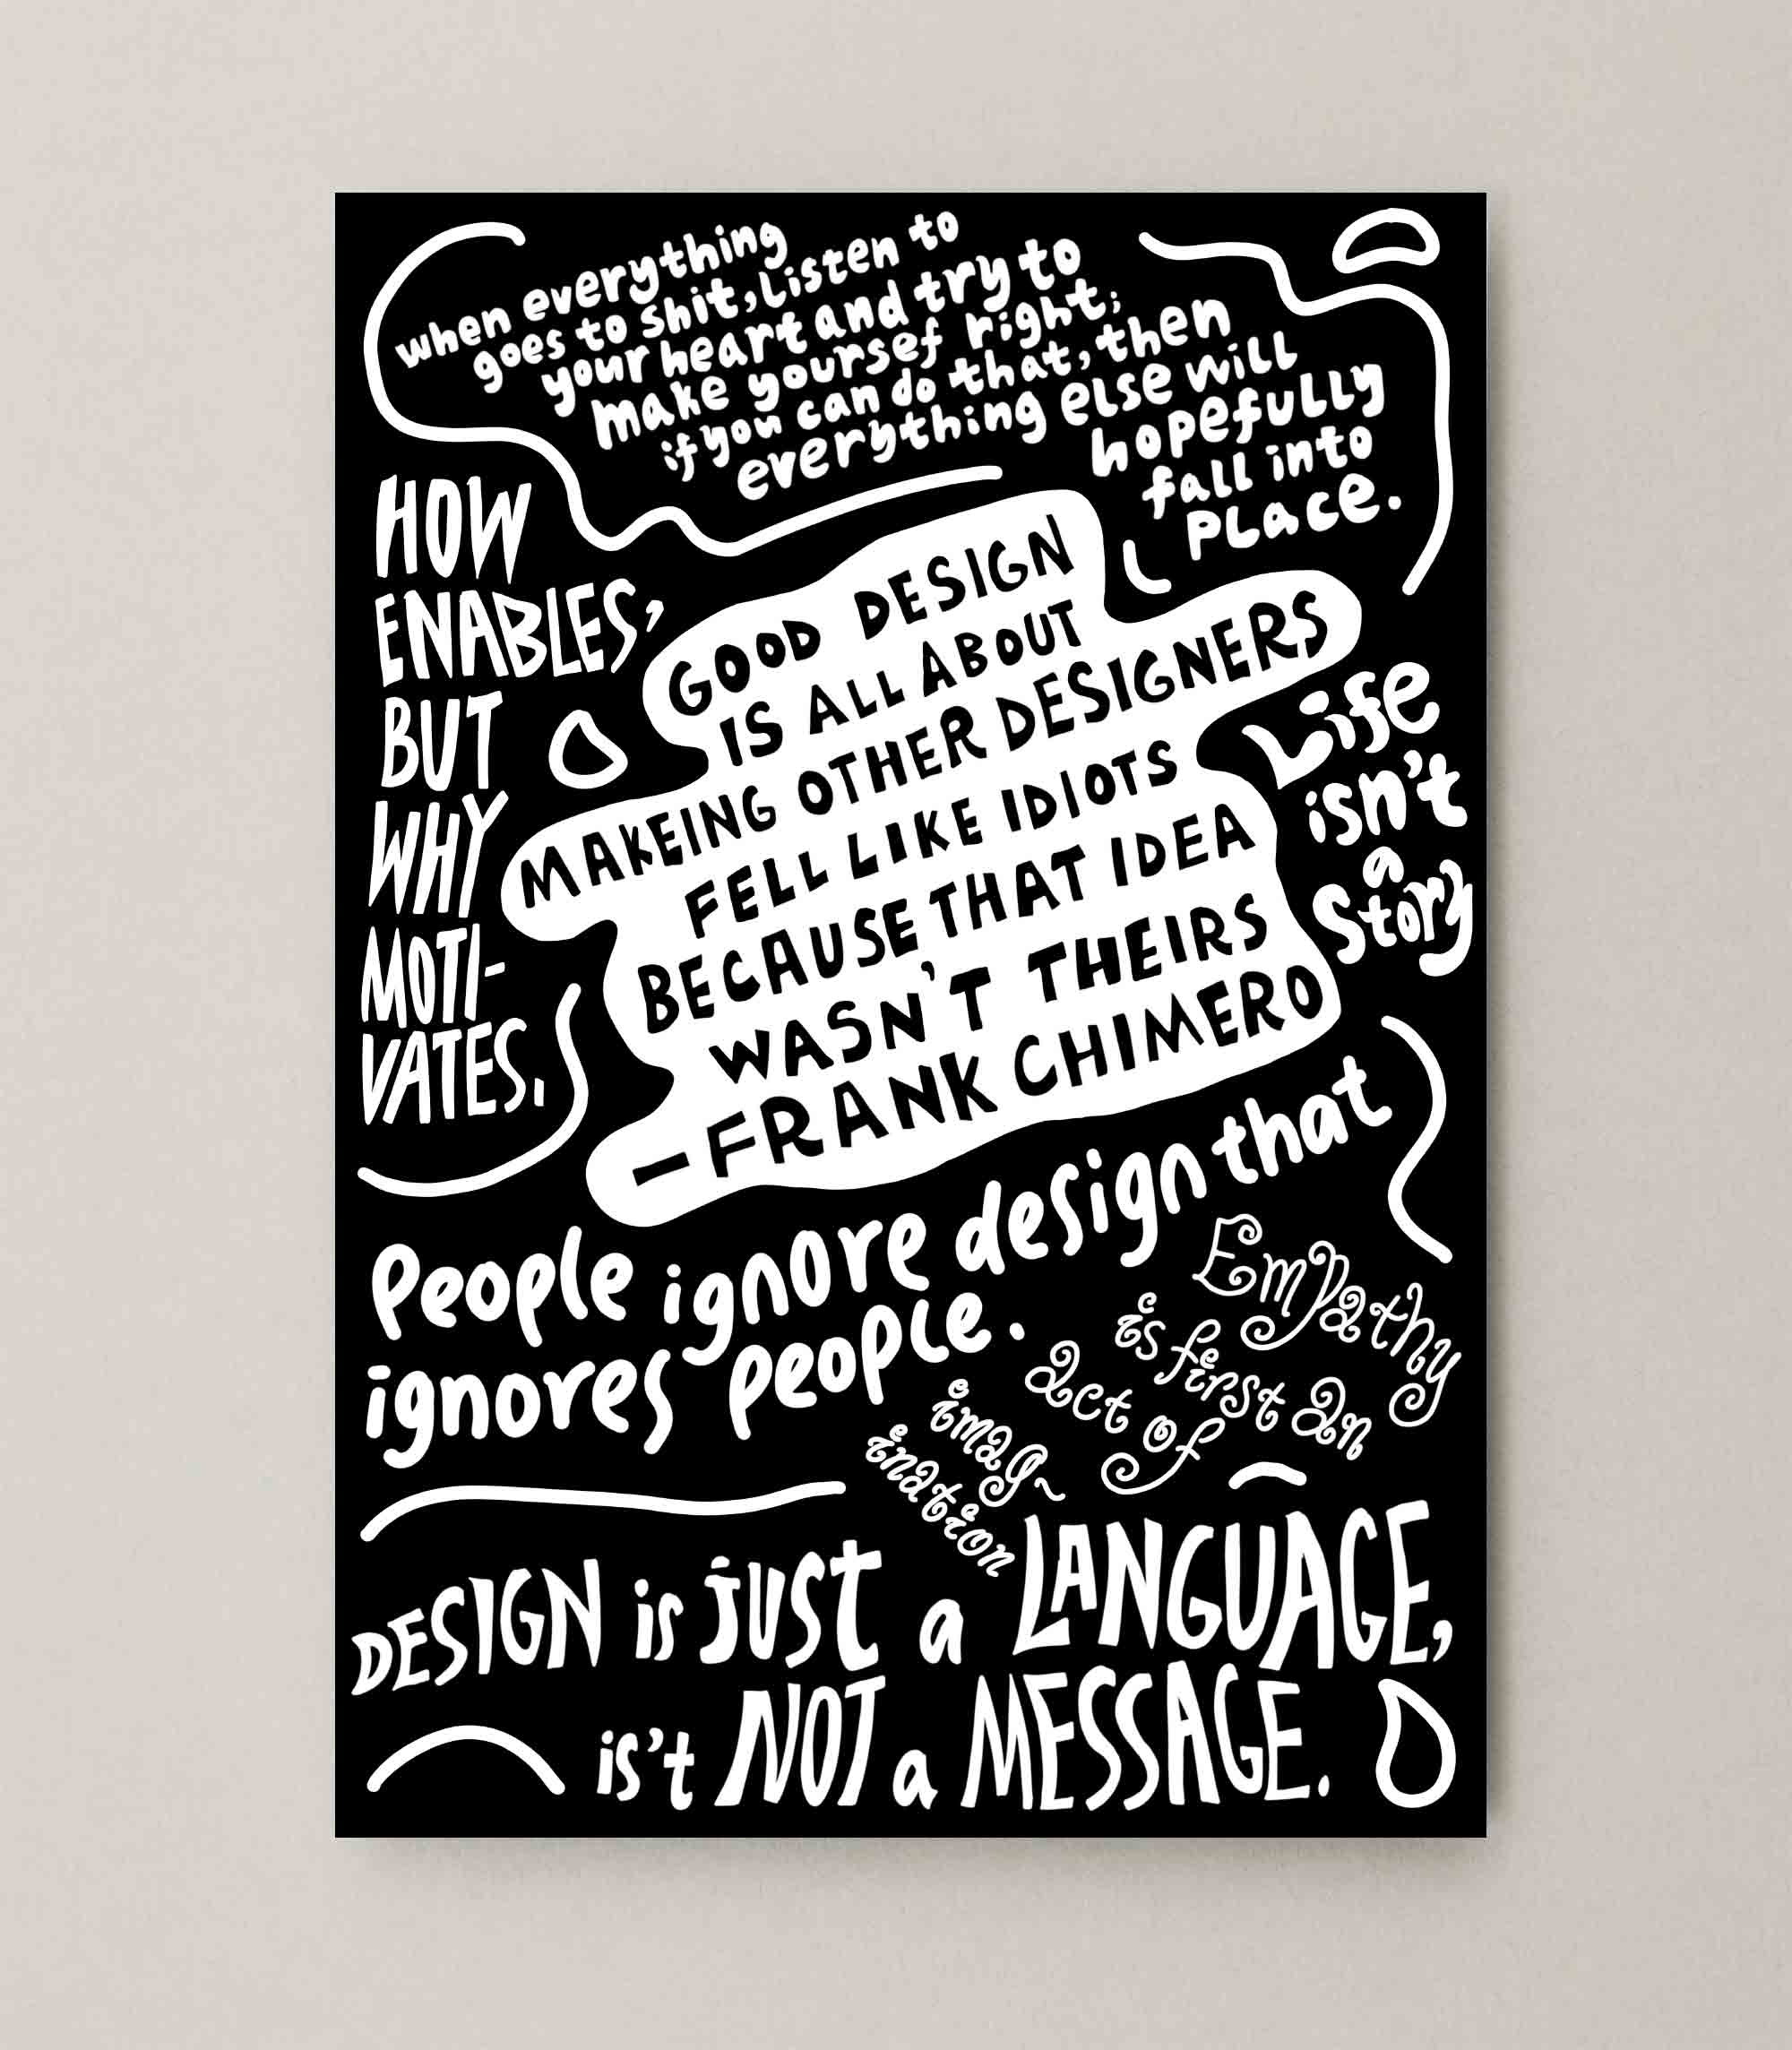 when everything
goes to shit, listen to
your heart and try to
make yoursef right;
if you can do that, then
everything else will
hopefully
fall into
place.
HOW
ENABLES,
BUT
WHY
MOTI-
VATES.
GOOD DESIGN
IS ALL ABOUT
MAKEING OTHER DESIGNERS
FELL LIKE IDIOTS
BECAUSE THAT IDEA
WASN'T THEIRS
-FRANK CHIMERO
Life
isn't
a
Story
People ignore design that
ignores people.
Empathy
is first an
act of
imag-
ination
DESIGN is JUST a LANGUAGE,
is't NOT a MESSAGE.